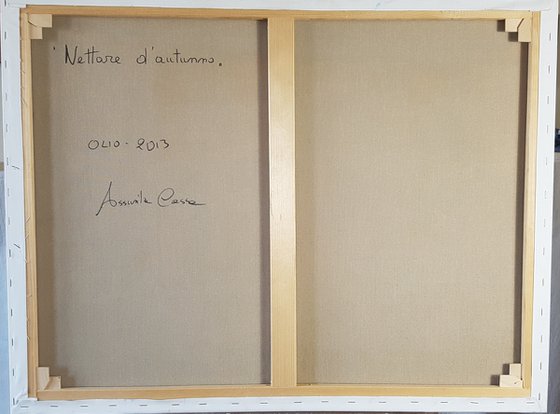 Nettare d'autunno.
OLIO - 2013
Assunta Cassa